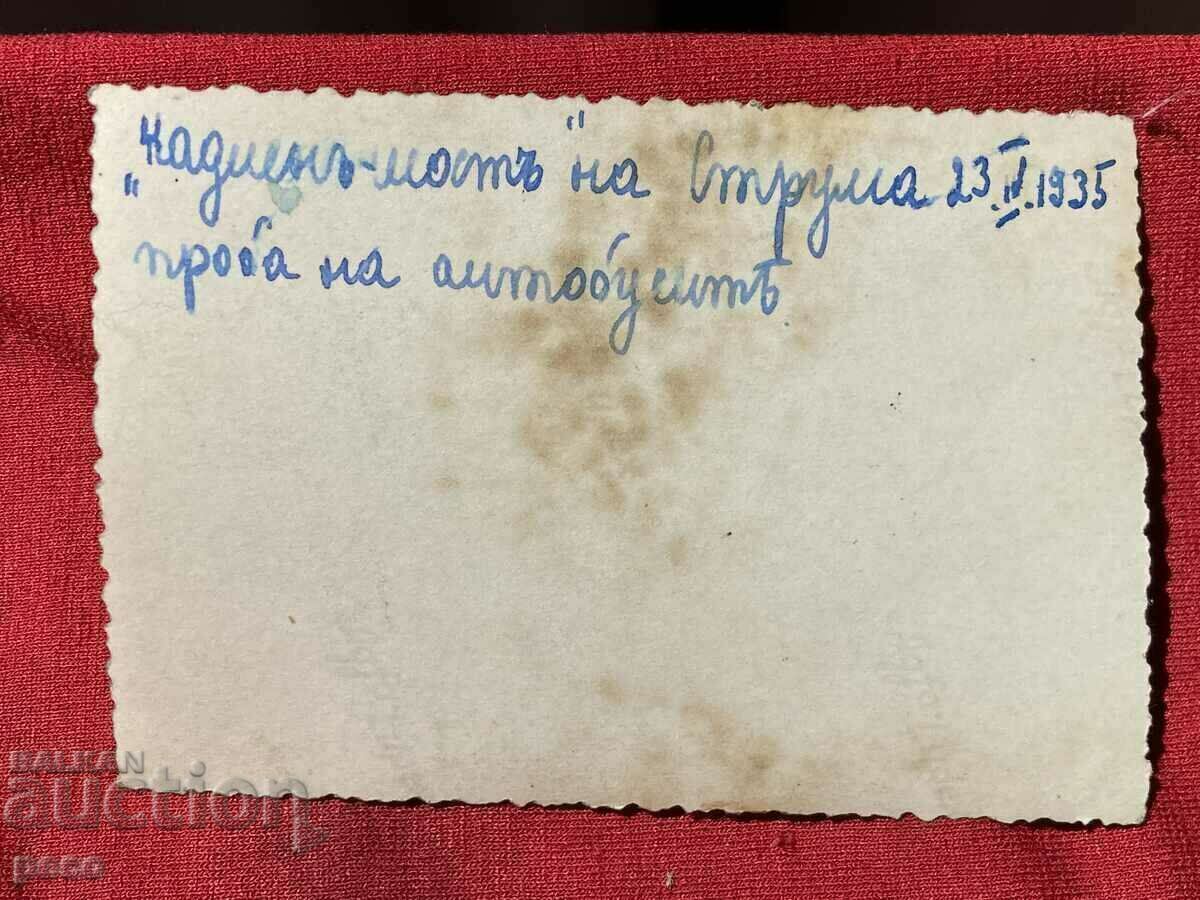 „Кадиенъ-мостъ“ на Струма 23.IV.1935
проба на автобуситѣ
BALKAN
auction
peco